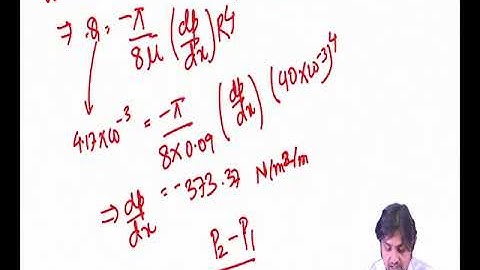 ⇒ Q = -π/8μ (dp/dx) R⁴
4.17×10⁻³ = -π/8×0.09 (dp/dx) (40×10⁻³)⁴
⇒ dp/dx = -373.37 N/m²/m
P₂-P₁